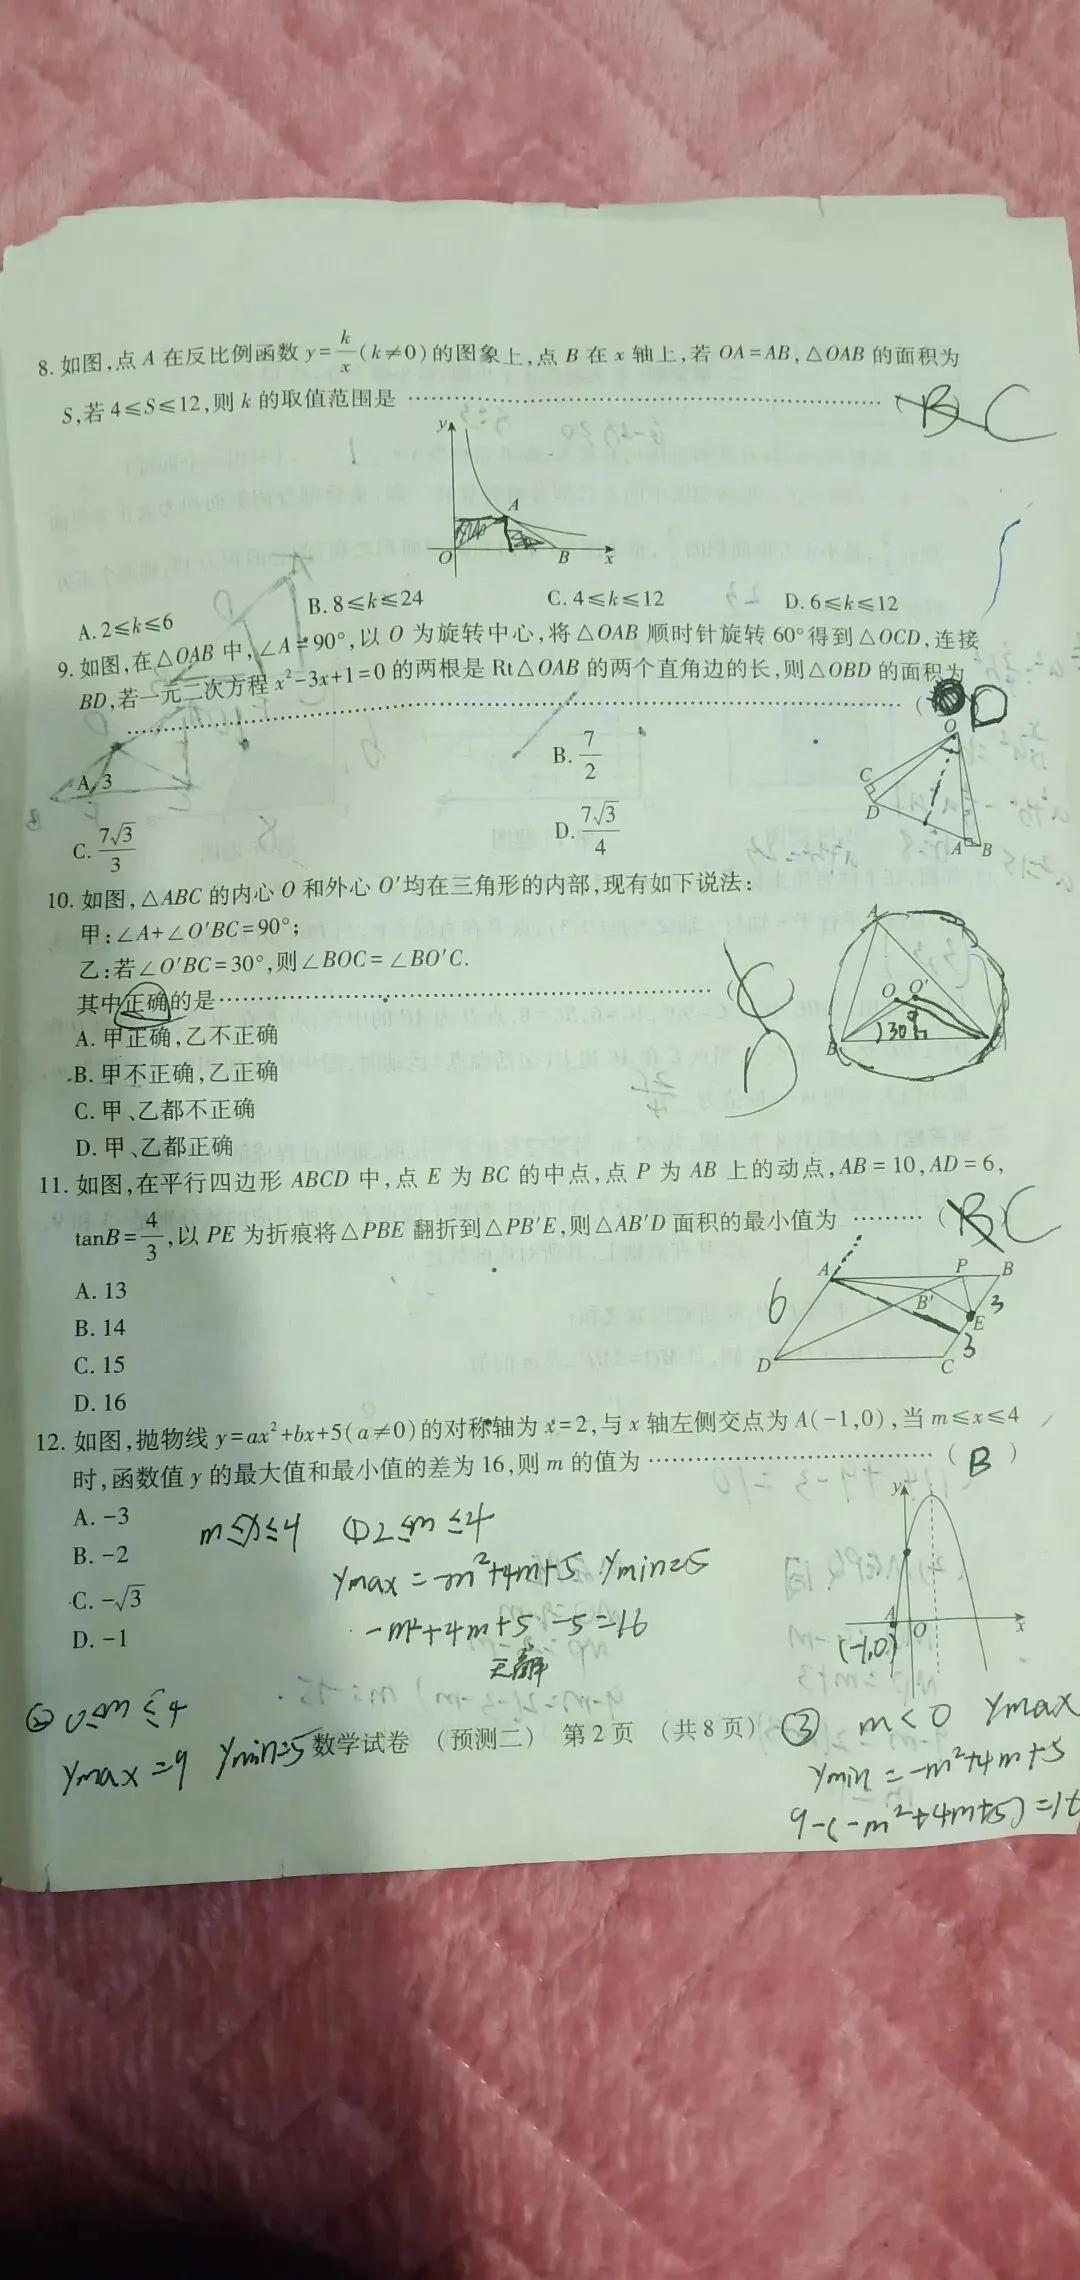 8. 如图,点 A 在反比例函数 y=k/x(k≠0)的图象上,点 B 在 x 轴上,若 OA=AB,△OAB 的面积为
S,若 4≤S≤12,则 k 的取值范围是 ……………………………… (B) C
y
A
O
B
x
A. 2≤k≤6
B. 8≤k≤24
C. 4≤k≤12
D. 6≤k≤12
9. 如图,在△OAB 中,∠A=90°,以 O 为旋转中心,将△OAB 顺时针旋转 60°得到△OCD,连接
BD,若一元二次方程 x²-3x+1=0 的两根是 Rt△OAB 的两个直角边的长,则△OBD 的面积为
……………………………… ( D
A. 3
B. 7/2
C. 7√3/3
D. 7√3/4
O
C
D
A
B
10. 如图,△ABC 的内心 O 和外心 O′均在三角形的内部,现有如下说法:
甲:∠A+∠O′BC=90°;
乙:若∠O′BC=30°,则∠BOC=∠BO′C.
其中正确的是 ……………………………… (C
D
A. 甲正确,乙不正确
B. 甲不正确,乙正确
C. 甲、乙都不正确
D. 甲、乙都正确
A
O O′
B
30
11. 如图,在平行四边形 ABCD 中,点 E 为 BC 的中点,点 P 为 AB 上的动点,AB=10,AD=6,
tanB=4/3,以 PE 为折痕将△PBE 翻折到△PB′E,则△AB′D 面积的最小值为 ……… (B) C
A. 13
B. 14
C. 15
D. 16
A P B
6 B′ 3
E
3
D C
12. 如图,抛物线 y=ax²+bx+5(a≠0)的对称轴为 x=2,与 x 轴左侧交点为 A(-1,0),当 m≤x≤4
时,函数值 y 的最大值和最小值的差为 16,则 m 的值为 ……………………… ( B )
A. -3
B. -2
C. -√3
D. -1
y
A
O
x
(-1,0)
m≤x≤4 ①2≤m≤4
ymax=-m²+4m+5 ymin=5
-m²+4m+5-5=16
无解
② 0≤m≤4
ymax=9 ymin=5
数学试卷 (预测二) 第 2 页 (共 8 页)
③ m<0 ymax
ymin=-m²+4m+5
9-(-m²+4m+5)=1